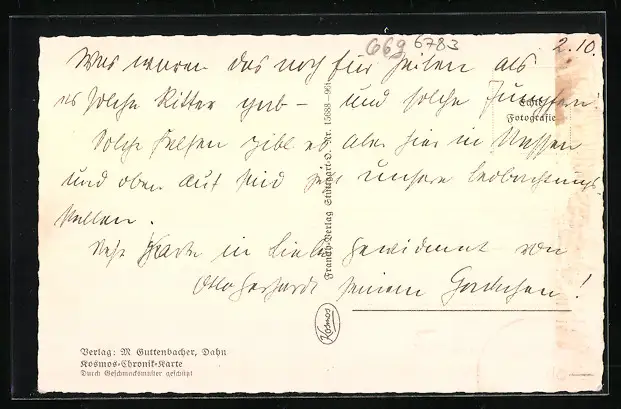 669 6783
2.10.
Was waren das noch für Zeiten als
es solche Ritter gab – und solche Jungfern!
Solche Felsen gibt es aber hier in Massen
und oben auf sind jetzt unsere Beobachtungs-
stellen.
Diese Karte in Liebe gewidmet von
Otto Gerhardt seinem
Echte
Fotografie
Franckh-Verlag Stuttgart-O. Nr. 15688—961
Kosmos
Verlag: M Guttenbacher, Dahn
Kosmos-Chronik-Karte
Durch Geschmacksmuster geschützt